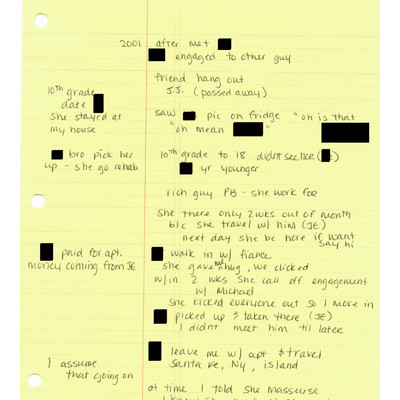 2001 after met
engaged to other guy
friend hang out
J.J. (passed away)
10th grade
date
she stayed at
my house
saw pic on fridge "oh is that
"oh mean
bro pick her
up - she go rehab
10th grade to 18 didnt see her (JE)
yr younger
rich guy PB - she work foe
she there only 2 wks out of month
b/c she travel w/ him (JE)
next day she be here if want
say hi
paid for apt.
money coming from JE
walk in w/ fiance
she gave me hug, we clicked
w/in 2 wks she call off engagement
w/ Michael
she kicked everyone out so I move in
picked up & taken there (JE)
I didnt meet him til later
leave me w/ apt & travel
Santa Fe, NY, island
I assume
that going on
at time I told she masseuse